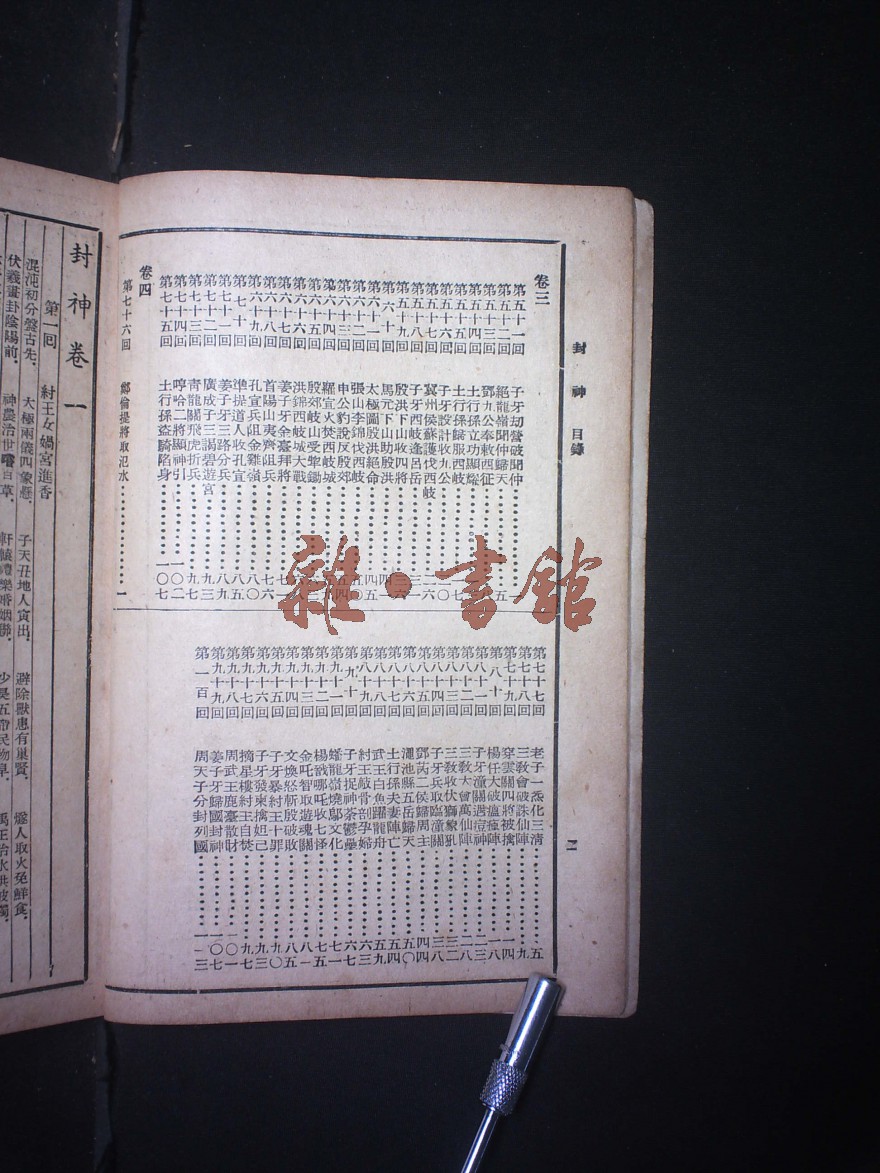 封神 目錄 二
卷三
第五十一回 子牙劫營破聞仲
第五十二回 絕龍嶺聞仲歸天
第五十三回 鄧九公奉敕西征
第五十四回 土行孫立功顯耀
第五十五回 土行孫歸服西岐
第五十六回 子牙設計收九公
第五十七回 冀州侯蘇護伐西岐
第五十八回 子牙西岐逢呂岳
第五十九回 殷洪下山收四將
第六十回 馬元下山助殷洪
第六十一回 太極圖殷洪絕命
第六十二回 張山李錦伐西岐
第六十三回 申公豹說反殷郊
第六十四回 羅宣火焚西岐城
第六十五回 殷郊岐山受犂鋤
第六十六回 洪錦西岐城大戰
第六十七回 姜子牙金臺拜將
第六十八回 首陽山夷齊阻兵
第六十九回 孔宣兵阻金雞嶺
第七十回 準提道人收孔宣
第七十一回 姜子牙三路分兵
第七十二回 廣成子三謁碧遊宮
第七十三回 青龍關飛虎折兵
第七十四回 哼哈二將顯神 一〇二
第七十五回 土行孫盜騎陷身 一〇七
卷四
第七十六回 鄭倫捉將取氾水 一
第七十七回 老子一炁化三清 五
第七十八回 三教會破誅仙陣 九
第七十九回 穿雲關四將被擒 一四
第八十回 楊任大破瘟𤻁陣 一八
第八十一回 子牙潼關遇痘神 二三
第八十二回 三教大會萬仙陣 二八
第八十三回 三教收伏獅象犼 三二
第八十四回 子牙兵取臨潼關 三八
第八十五回 鄧芮二侯歸周主 四四
第八十六回 澠池縣五岳歸天 五〇
第八十七回 土行孫夫妻陣亡 五四
第八十八回 武王白魚躍龍舟 五九
第八十九回 紂王敲骨剖孕婦 六三
第九十回 子牙捉神荼鬱壘 六七
第九十一回 蟠龍嶺燒鄔文化 七一
第九十二回 楊戩哪吒收七怪 七五
第九十三回 金吒智取遊魂關 八一
第九十四回 文煥怒斬殷破敗 八五
第九十五回 子牙暴紂王十罪 九〇
第九十六回 子牙發柬擒妲己 九三
第九十七回 摘星樓紂王自焚 九七
第九十八回 周武王鹿臺散財 一〇一
第九十九回 姜子牙歸國封神 一〇七
第一百回 周天子分封列國 一一三
封神卷一
第一回 紂王女媧宮進香
混沌初分盤古先．太極兩儀四象懸．子天丑地人寅出．避除獸患有巢賢．燧人取火免鮮食．
伏羲畫卦陰陽前．神農治世嚐百草．軒轅禮樂婚姻聯．少昊五帝民物阜．禹王治水洪波蠲．
雜·書館